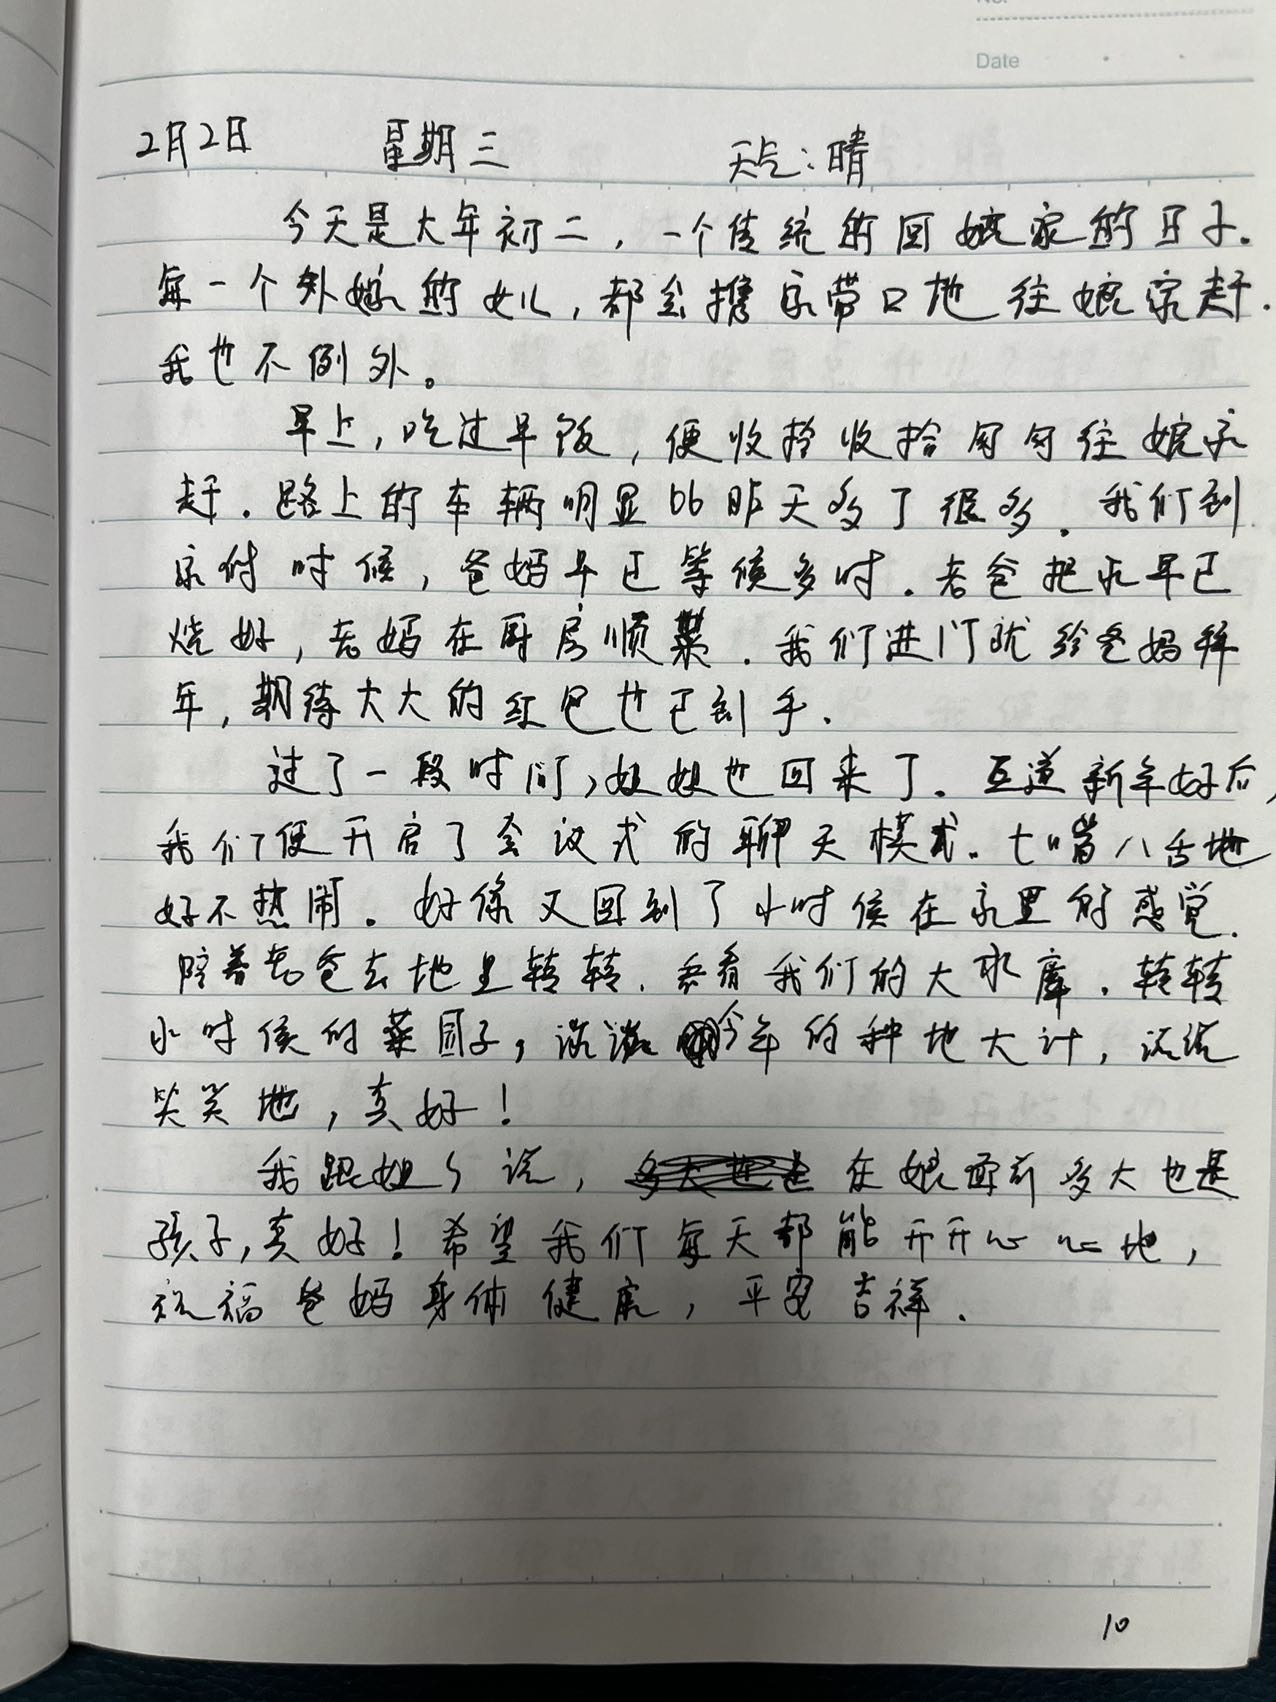 Date
2月2日 星期三 天气:晴
今天是大年初二，一个传统的回娘家的日子.
每一个外嫁的女儿，都会携家带口地往娘家赶.
我也不例外。
早上，吃过早饭，便收拾收拾匆匆往娘家
赶.路上的车辆明显比昨天多了很多.我们到
家的时候，爸妈早已等候多时.老爸把水早已
烧好，老妈在厨房顺菜.我们进门就给爸妈拜
年，期待大大的红包也已到手.
过了一段时间，姐姐也回来了.互道新年好后，
我们便开启了会议式的聊天模式.七嘴八舌地
好不热闹.好像又回到了小时候在家里的感觉.
陪着老爸去地里转转.看我们的大水库.转转
小时候的菜园子，谈谈今年的种地大计，说说
笑笑地，真好!
我跟姐姐说，在娘面前多大也是
孩子，真好!希望我们每天都能开开心心地，
祝福爸妈身体健康，平安吉祥.
10